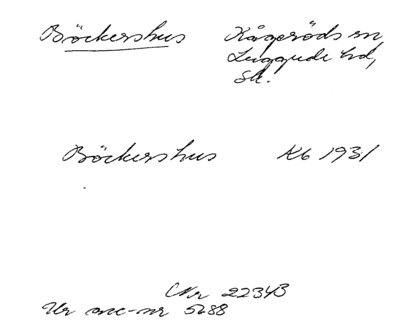 Böckershus Kågeröds sn
Luggude hd,
Sk.
Böckershus Kb 1931
Nr 22343
Ur acc-nr 5288